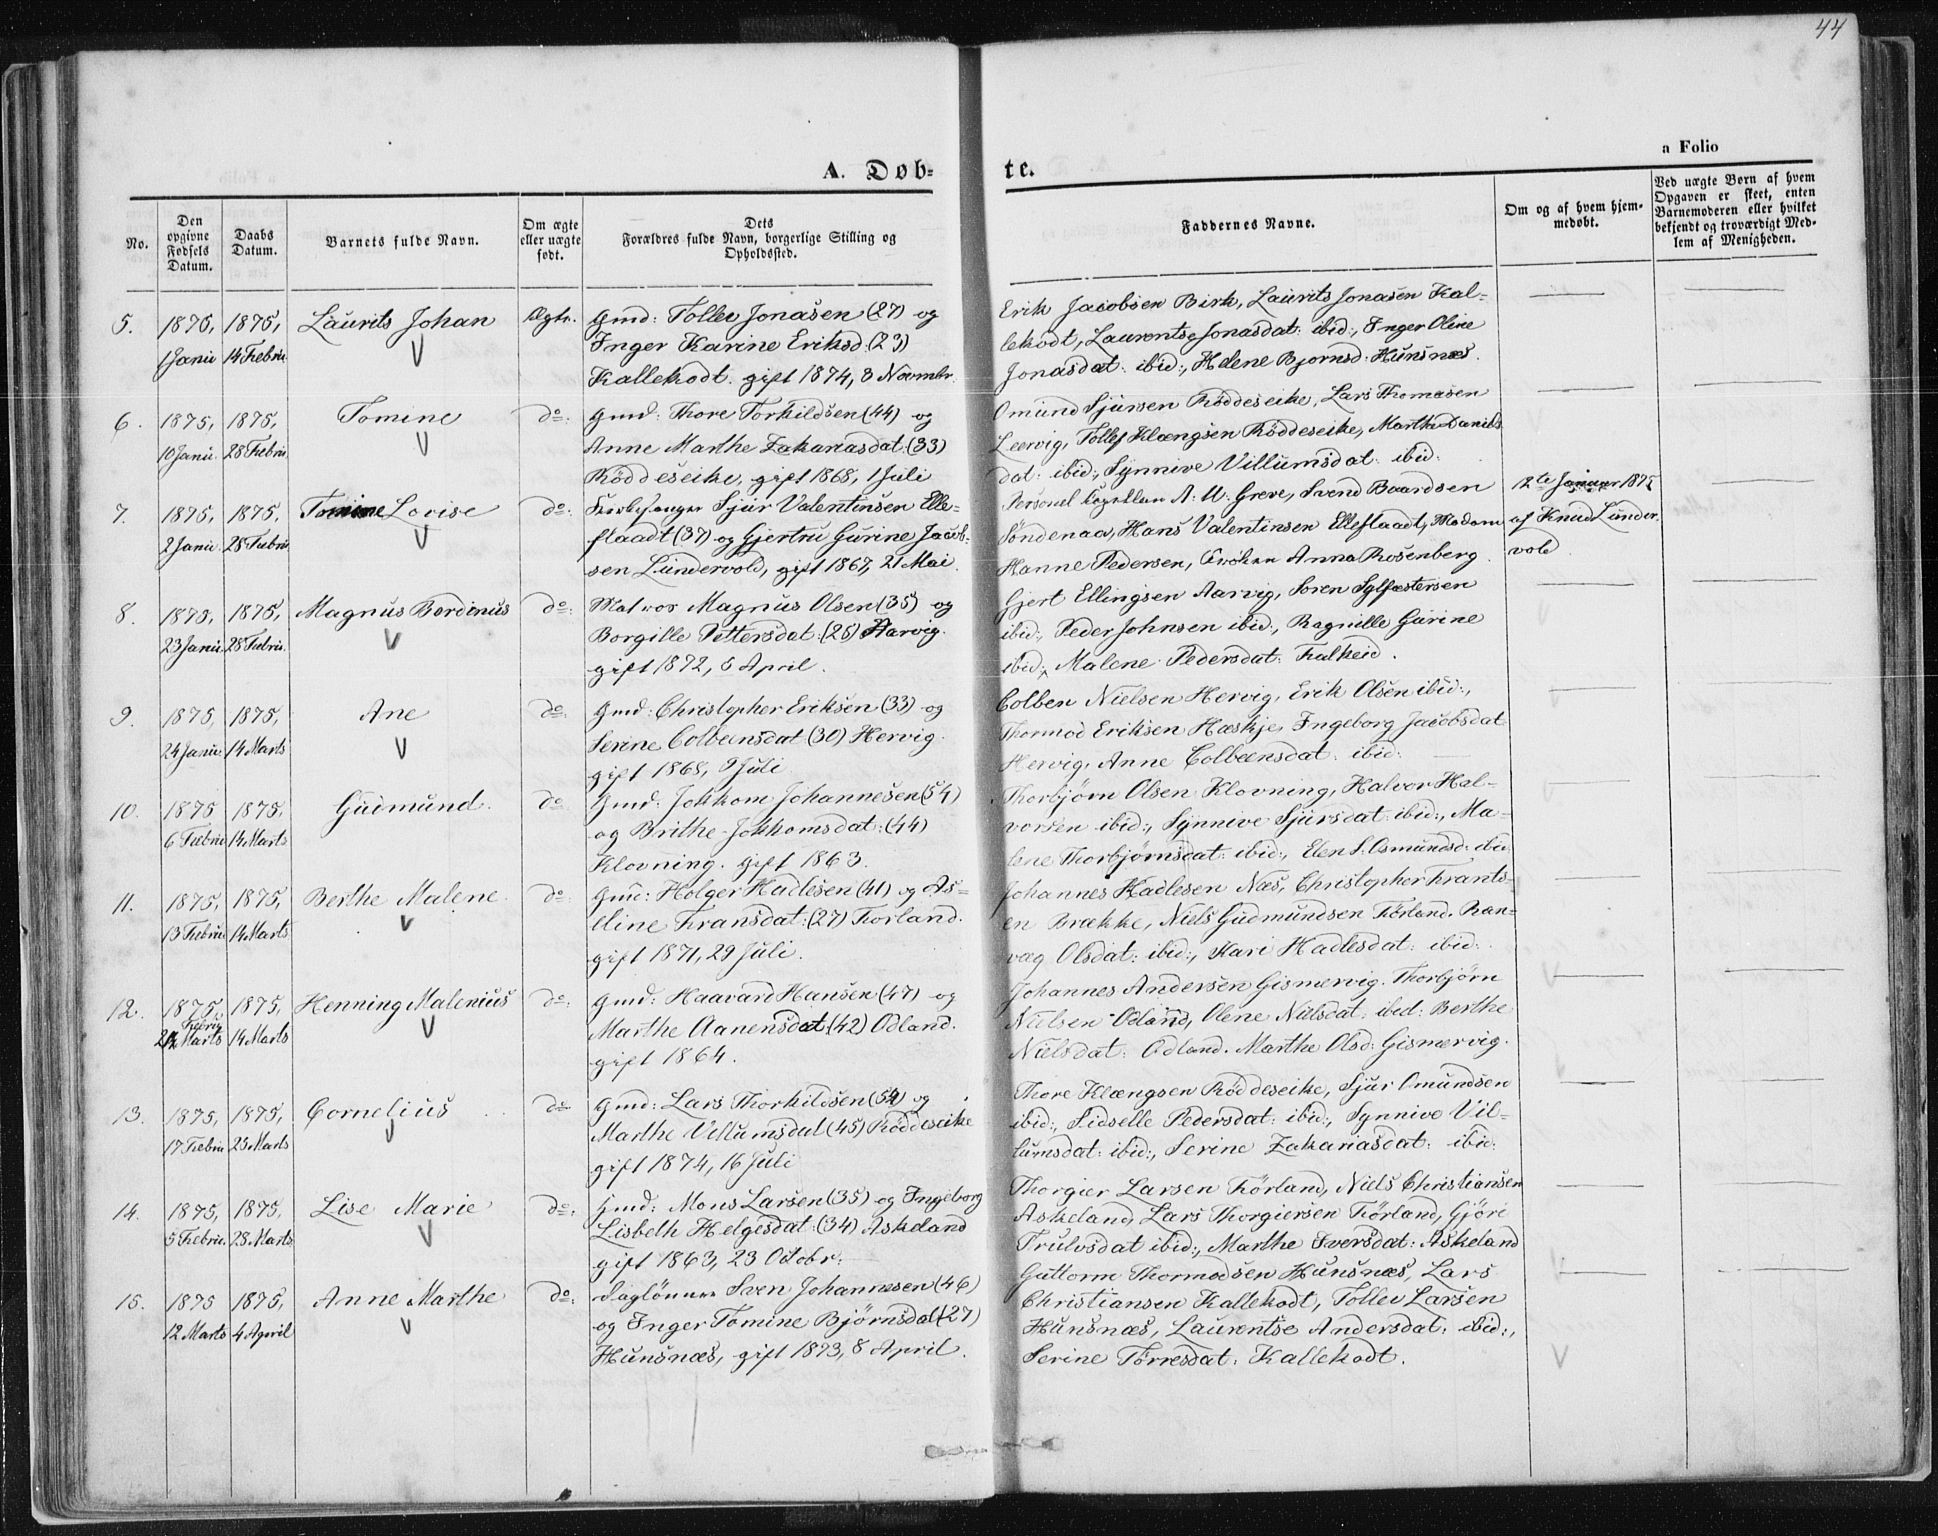 44
a Folio
A. Døb-
te.
No.
Den opgivne Fødsels Datum.
Daabs Datum.
Barnets fulde Navn.
Om ægte eller uægte født.
Dets Forældres fulde Navn, borgerlige Stilling og Opholdssted.
Faddernes Navne.
Om og af hvem hjemmedøbt.
Ved uægte Børn af hvem Opgaven er skeet, enten Barnemoderen eller hvilket bekjendt og troværdigt Medlem af Menigheden.
5. 1875, 1875, Laurits Johan Ægte. Gmd: Tollev Jonasen (27) og
1 Janu 14 Febru Inger Karine Eriksd: (23)
Kallekodt. gift 1874, 8 Novembr.
Erik Jacobsen Birk, Laurits Jonasen Kal-
lekodt, Laurentse Jonasdat: ibid:, Inger Oline
Jonasdat: ibid:, Helene Bjornsd: Hunsnæs.
6. 1875, 1875, Tomine do: Gmd: Thore Torkildsen (44) og
10 Janu. 28 Febru Anne Marthe Zakariasdat: (33)
Röddeseike, gift 1868, 1 Juli
Omund Sjursen Röddeseike, Lars Thomasen
Leervig, Tollef Klængsen Röddeseike, Marthe Daniels
dat: ibid:, Synnive Villumsdat: ibid:
7. 1875, 1875, Tomine Lovise do: Sjur Valentinsen Elle-
2 Janu. 28 Febru flaadt (37) og Gjertru Gurine Jacob-
sen Lundervold, gift 1867, 21 Mai.
Personel Capellan A. W. Greve, Svend Baardsen
Söndenaa, Hans Valentinsen Elleflaadt, Madam
Hanne Pedersen, Frøken Anna Rosenberg
12te Januar 1875
af Knud Lunder-
vold
8. 1875, 1875, Magnus Bordinus do: Matros Magnus Olsen (35) og
23 Janu 28 Febru. Borgille Pettersdat: (26) Aarvig.
gift 1872, 5 April.
Gjert Ellingsen Aarvig, Soren Sylfæstersen
ibid:, Peder Johnsen ibid:, Ragnille Gurine
ibid:, Malene Pedersdat: Falkeid.
9. 1875, 1875, Ane do: Gmd: Christopher Eriksen (33) og
24 Janu 14 Marts Serine Colbensdat (30) Hervig.
gift 1865, 9 Juli
Colben Nielsen Hervig, Erik Olsen ibid:,
Thormod Eriksen Hæskje, Ingeborg Jacobsdat
Hervig, Anne Colbænsdat: ibid:
10. 1875 1875, Gudmund. do Gmd: Jokkom Johannesen (54)
6 Febru 14 Marts og Brithe Jokkomsdat: (44)
Klovning. gift 1863.
Thorbjørn Olsen Klovning, Halvor Hal-
vorsen ibid:, Synnive Sjursdat: ibid:, Ma-
lene Thorbjørnsdat: ibid:, Elen S: Osmundsd: ibid:
11. 1875, 1875, Berthe Malene do: Gmd: Holger Hadlesen (41) og As-
13 Febru 14 Marts lline Fransdat: (27) Förland.
gift 1871, 29 Juli.
Johannes Hadlesen Næs, Christopher Frants-
en Brække, Niels Gudmundsen Förland, Ran-
væg Olsdat: ibid:, Kari Hadlesdat: ibid:
12. 1875, 1875, Henning Malenius do: Gmd: Haavard Hansen (47) og
Febru Marts 14 Marts Marthe Aanensdat (42) Odland.
gift 1864.
Johannes Andersen Gismervig. Thorbjørn
Nielsen Odland, Olene Nielsdat: ibid: Berthe
Nielsdat: Odland. Marthe Olsd: Gismervig.
13. 1875, 1875, Cornelius do Gmd: Lars Thorkildsen (54) og
17 Febru 25 Marts Marthe Villumsdat (45) Röddeseike
gift 1874, 16 Juli
Thore Klængsen Röddeseike, Sjur Omundsen
ibid:, Sidselle Pedersdat: ibid:, Synnive Vil-
lumsdat: ibid:, Serine Zakariasdat: ibid:
14. 1875, 1875, Lise Marie do: Gmd: Mons Larsen (35) og Ingeborg
5 Febru. 28 Marts Lisbeth Helgesdat: (34) Askeland
gift 1863, 23 Octobr:
Thorgier Larsen Förland, Niels Christiansen
Askeland, Lars Thorgiersen Förland, Gjöre
Trulvsdat ibid:, Marthe Iversdat: Askeland
15. 1875 1875, Anne Marthe do: Daglönner Sven Johannesen (46)
12 Marts 4 April og Inger Tomine Bjørnsdat (27)
Hunsnæs, gift 1873, 8 April.
Guttorm Thormodsen Hunsnæs, Lars
Christiansen Kallekodt, Tollev Larsen
Hunsnæs, Laurentse Andersdat: ibid:,
Serine Tørresdat: Kallekodt.